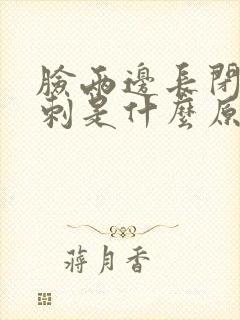 臉兩邊長閉
刺是什麼原
蔣月香